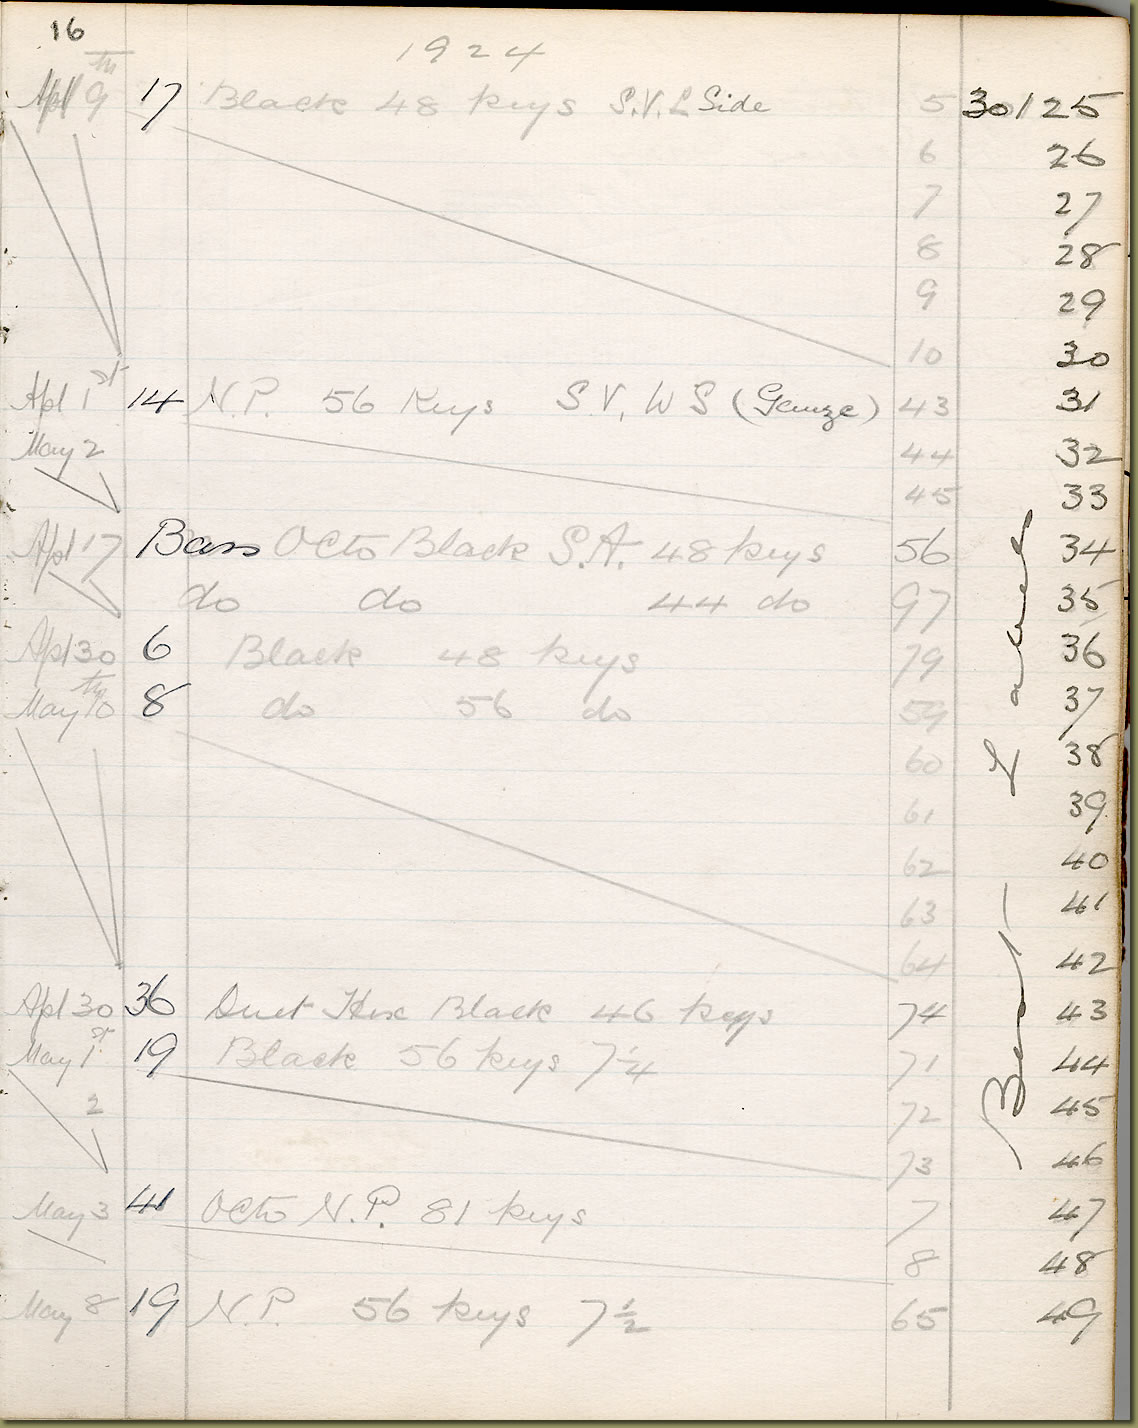 16
1924
Apl 9th 17 Black 48 keys S.V. L Side 5 30125
6 26
7 27
8 28
9 29
10 30
Apl 1st 14 N.P. 56 Keys S.V. W S (Gauze) 43 31
May 2 44 32
45 33
Apl 17 Bass Octo Black S.A. 48 keys 56 34
do do 44 do 97 35
Apl 30 6 Black 48 keys 79 36
May 10th 8 do 56 do 59 37
60 38
61 39
62 40
63 41
64 42
Apl 30 36 Duet Hex Black 46 keys 74 43
May 1st 19 Black 56 keys 7 1/4 71 44
2 72 45
73 46
May 3 41 Octo N.P. 81 keys 7 47
8 48
May 8 19 N.P. 56 keys 7 1/2 65 49
Best